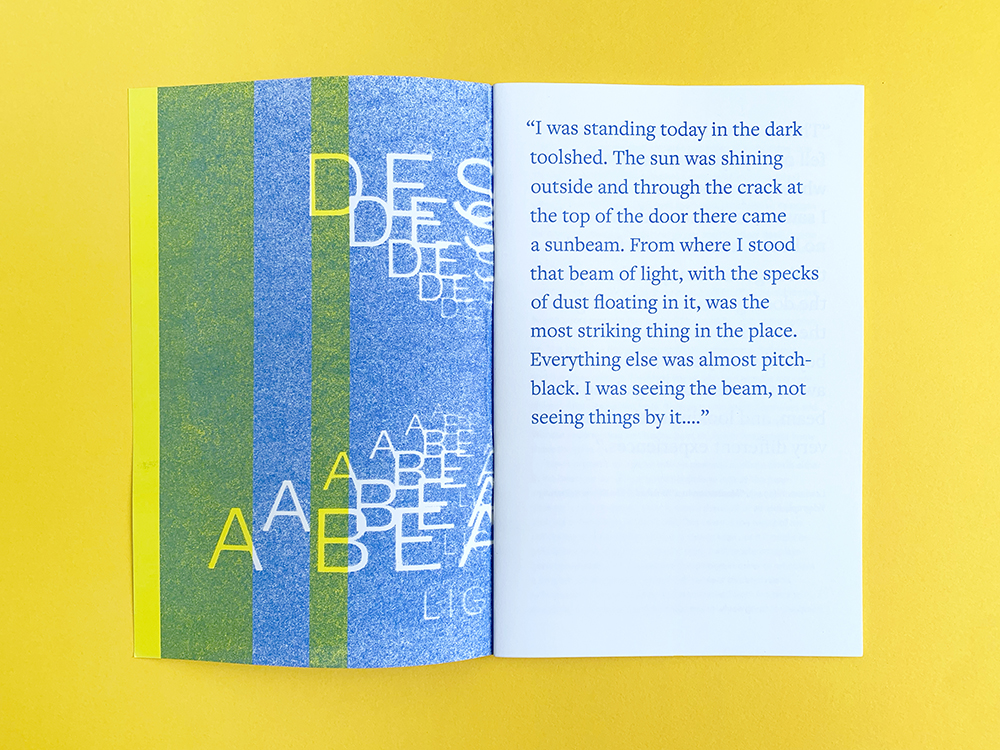 DES
DES
DES
DES
DES
ABEA
ABEA
ABEA
ABEA
A BEA
LIG
“I was standing today in the dark
toolshed. The sun was shining
outside and through the crack at
the top of the door there came
a sunbeam. From where I stood
that beam of light, with the specks
of dust floating in it, was the
most striking thing in the place.
Everything else was almost pitch-
black. I was seeing the beam, not
seeing things by it....”